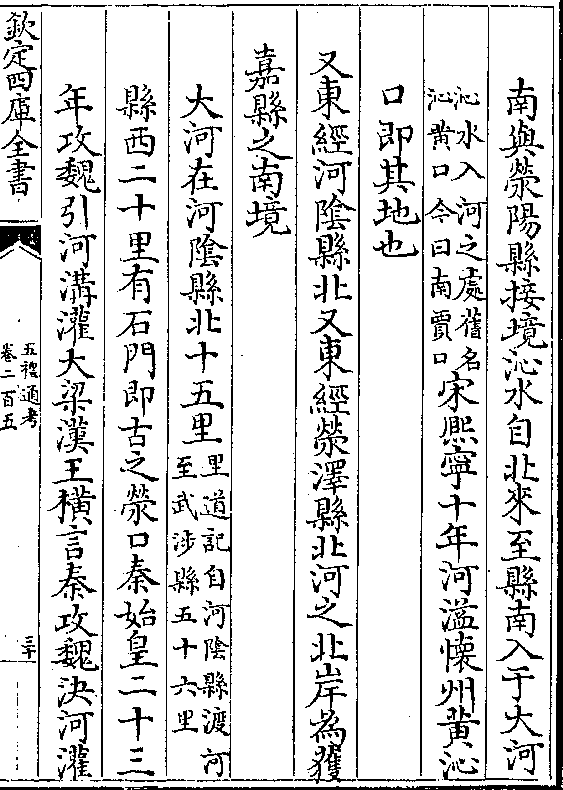 南與滎陽縣接境沁水自北來至縣南入于大河
沁水入河之處舊名
沁黄口今曰南賈口
宋熙寧十年河溢懐州黄沁
口即其地也
又東經河隂縣北又東經滎澤縣北河之北岸為獲
嘉縣之南境
大河在河隂縣北十五里
里道記自河隂縣渡河
至武渉縣五十六里
縣西二十里有石門即古之滎口秦始皇二十三
年攻魏引河溝灌大梁漢王横言秦攻魏決河灌
欽定四庫全書
五禮通考
卷二百五
三十